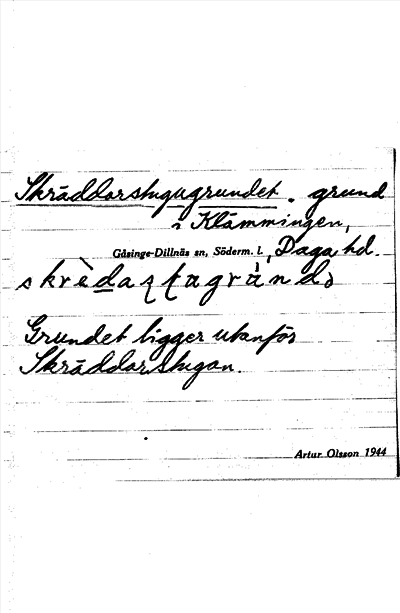 Skräddarstugugrundet. grund
i Klämmingen,
Gåsinge-Dillnäs sn, Söderm. l., Daga hd.
Grundet ligger utanför
Skräddarstugan.
Artur Olsson 1944